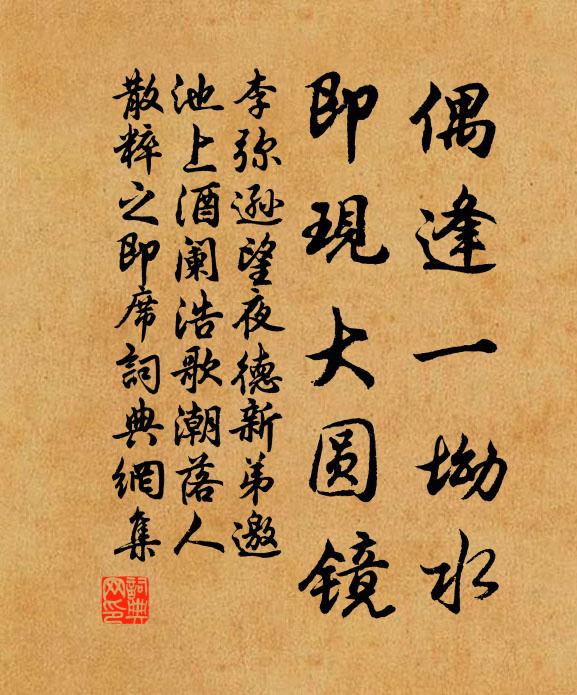 偶逢一坳水
即現大圆镜
李弥遜望夜德新弟邀
池上酒阑浩歌潮落人
散粹之即席詞典網集
詞典网印